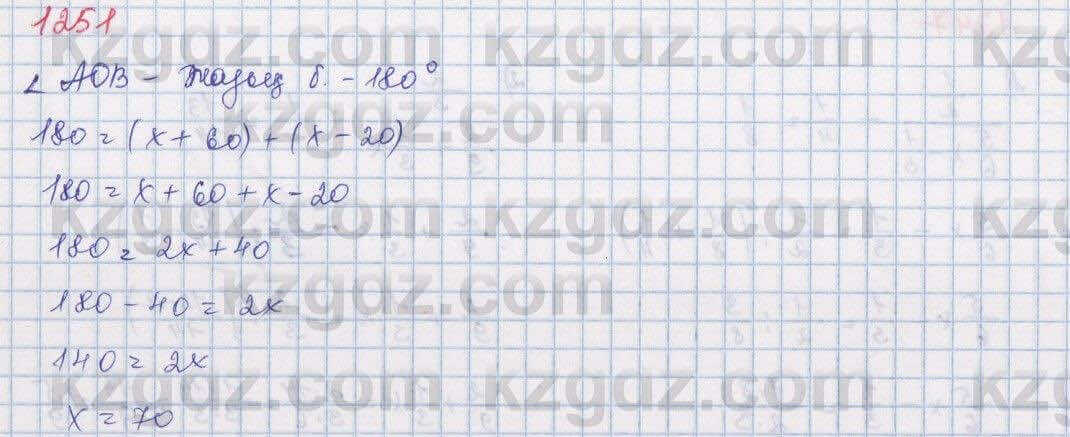 1251
∠ AOB - жазық б. - 180°
180 = (x + 60) + (x - 20)
180 = x + 60 + x - 20
180 = 2x + 40
180 - 40 = 2x
140 = 2x
x = 70
kzgdz.com kzgdz.com kz
kzgdz.com
kzgdz.com kzgdz.com kz
kzgdz.com
kzgdz.com kzgdz.com kz